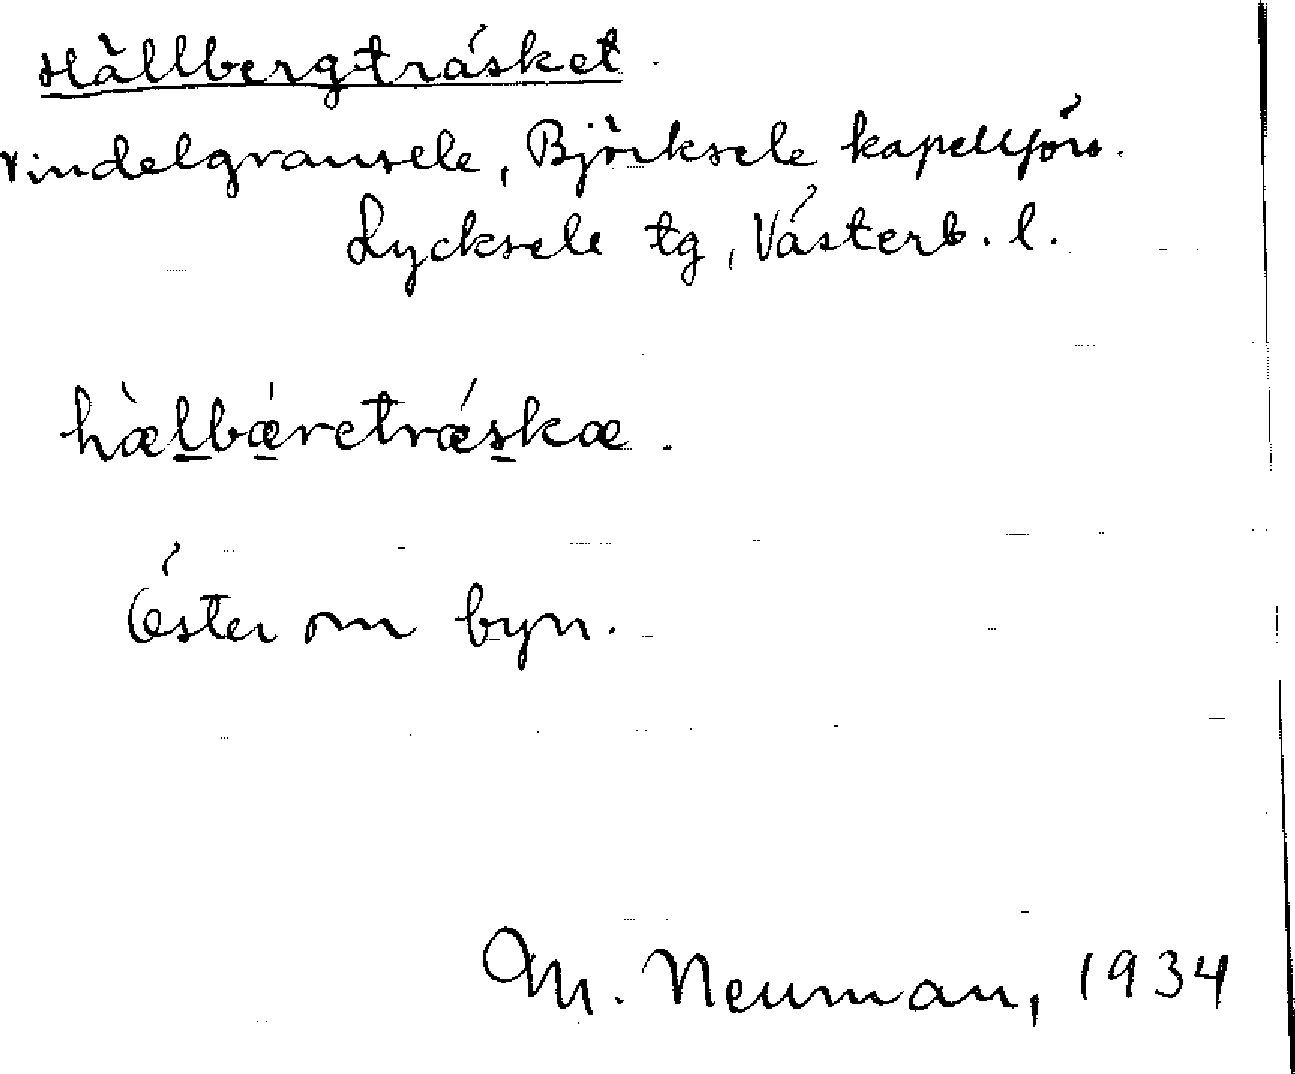 Hällbergträsket.
Vindelgransele, Björksele kapellförs.
Lycksele tg, Västerb. l.
hæ̀lbǽretrǽskæ.
Öster om byn.
M. Neuman, 1934